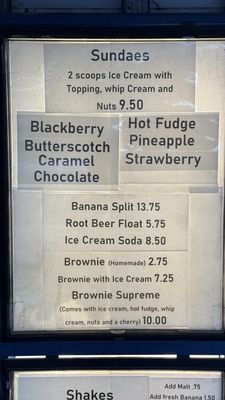 Sundaes
2 scoops Ice Cream with
Topping, whip Cream and
Nuts 9.50
Blackberry
Butterscotch
Caramel
Chocolate
Hot Fudge
Pineapple
Strawberry
Banana Split 13.75
Root Beer Float 5.75
Ice Cream Soda 8.50
Brownie (Homemade) 2.75
Brownie with Ice Cream 7.25
Brownie Supreme
(Comes with ice cream, hot fudge, whip
cream, nuts and a cherry) 10.00
Shakes
Add Malt .75
Add fresh Banana 1.50